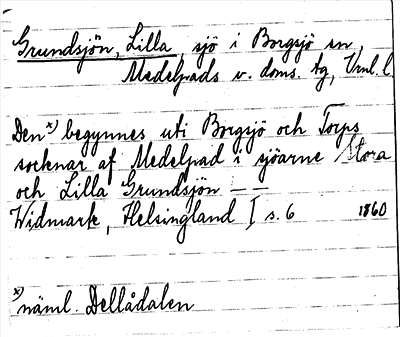 Grundsjön, Lilla, sjö i Borgsjö sn,
Medelpads v. doms. tg, Vnl. l
Den x) begynnes uti Borgsjö och Torps
socknar af Medelpad i sjöarne Stora
och Lilla Grundsjön — —
Widmark, Helsingland I s. 6 1860
x) näml. Dellådalen